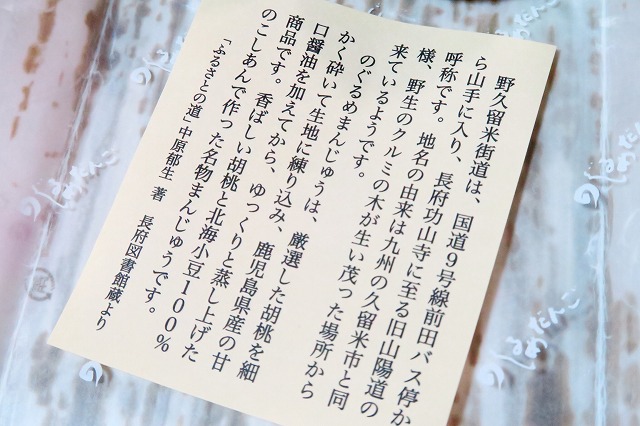 野久留米街道は、国道9号線前田バス停か
ら山手に入り、長府功山寺に至る旧山陽道の
呼称です。地名の由来は九州の久留米市と同
様、野生のクルミの木が生い茂った場所から
来ているようです。
のぐるめまんじゅうは、厳選した胡桃を細
かく砕いて生地に練り込み、鹿児島県産の甘
口醤油を加えてから、ゆっくりと蒸し上げた
商品です。香ばしい胡桃と北海小豆100%
のこしあんで作った名物まんじゅうです。
「ふるさとの道」中原郁生 著 長府図書館蔵より